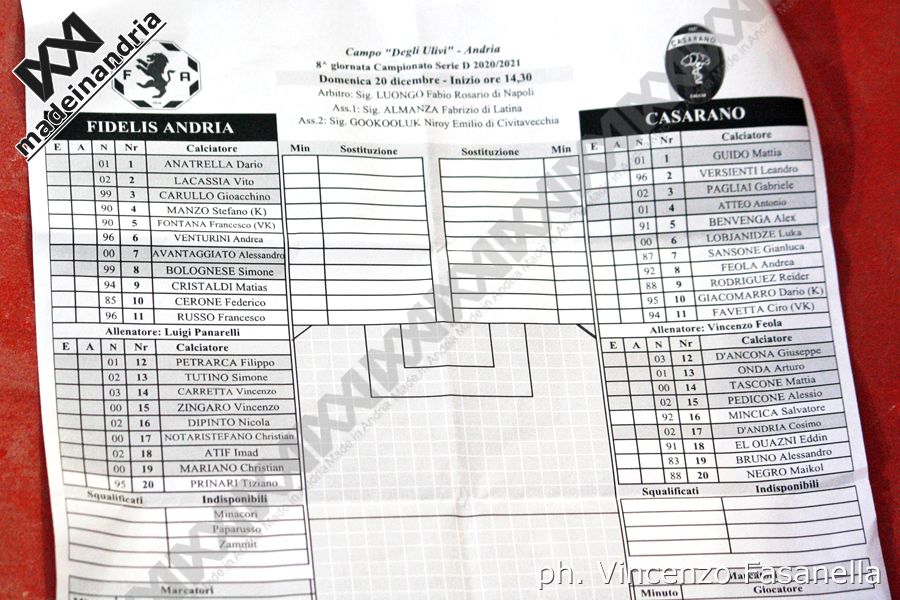 madeinandria
F A
CASARANO
Campo "Degli Ulivi" - Andria
8^ giornata Campionato Serie D 2020/2021
Domenica 20 dicembre - Inizio ore 14,30
Arbitro: Sig. LUONGO Fabio Rosario di Napoli
Ass.1: Sig. ALMANZA Fabrizio di Latina
Ass.2: Sig. GOOKOOLUK Niroy Emilio di Civitavecchia
FIDELIS ANDRIA
E A N Nr Calciatore
01 1 ANATRELLA Dario
02 2 LACASSIA Vito
99 3 CARULLO Gioacchino
90 4 MANZO Stefano (K)
90 5 FONTANA Francesco (VK)
96 6 VENTURINI Andrea
00 7 AVANTAGGIATO Alessandro
99 8 BOLOGNESE Simone
94 9 CRISTALDI Matias
85 10 CERONE Federico
96 11 RUSSO Francesco
Allenatore: Luigi Panarelli
E A N Nr Calciatore
01 12 PETRARCA Filippo
02 13 TUTINO Simone
03 14 CARRETTA Vincenzo
00 15 ZINGARO Vincenzo
02 16 DIPINTO Nicola
00 17 NOTARISTEFANO Christian
02 18 ATIF Imad
00 19 MARIANO Christian
95 20 PRINARI Tiziano
Squalificati Indisponibili
Minacori
Paparusso
Zammit
Marcatori
Min Sostituzione
Sostituzione Min
CASARANO
E A N Nr Calciatore
01 1 GUIDO Mattia
96 2 VERSIENTI Leandro
02 3 PAGLIAI Gabriele
01 4 ATTEO Antonio
91 5 BENVENGA Alex
00 6 LOBJANIDZE Luka
87 7 SANSONE Gianluca
92 8 FEOLA Andrea
88 9 RODRIGUEZ Reider
95 10 GIACOMARRO Dario (K)
94 11 FAVETTA Ciro (VK)
Allenatore: Vincenzo Feola
E A N Nr Calciatore
03 12 D'ANCONA Giuseppe
01 13 ONDA Arturo
00 14 TASCONE Mattia
02 15 PEDICONE Alessio
92 16 MINCICA Salvatore
02 17 D'ANDRIA Cosimo
91 18 EL OUAZNI Eddin
83 19 BRUNO Alessandro
88 20 NEGRO Maikol
Squalificati Indisponibili
Marcatori
Minuto Giocatore
ph. Vincenzo Fasanella